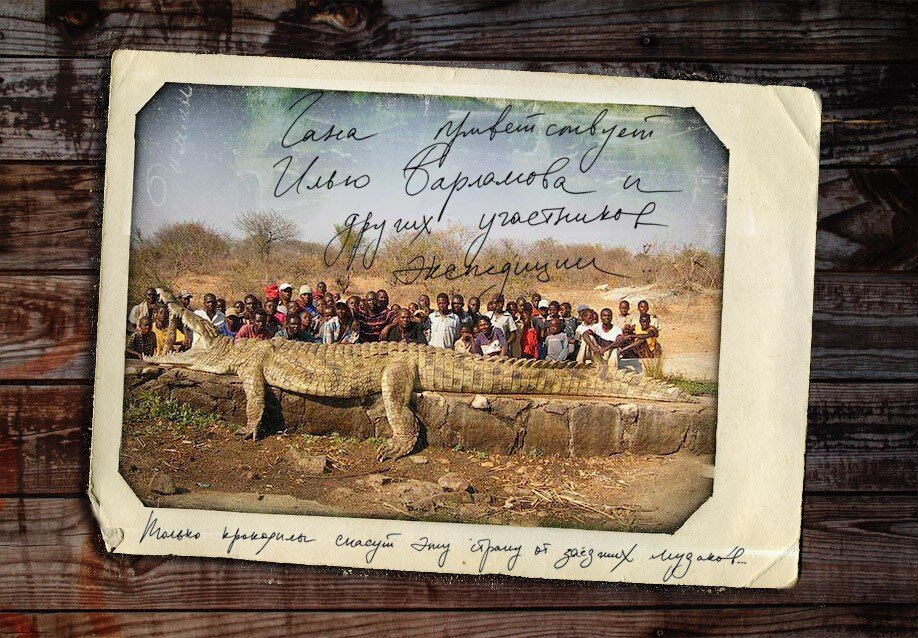 Гана приветствует
Илью Варламова и
других участников
экспедиции...
Только крокодилы спасут эту страну от заезжих мудаков...